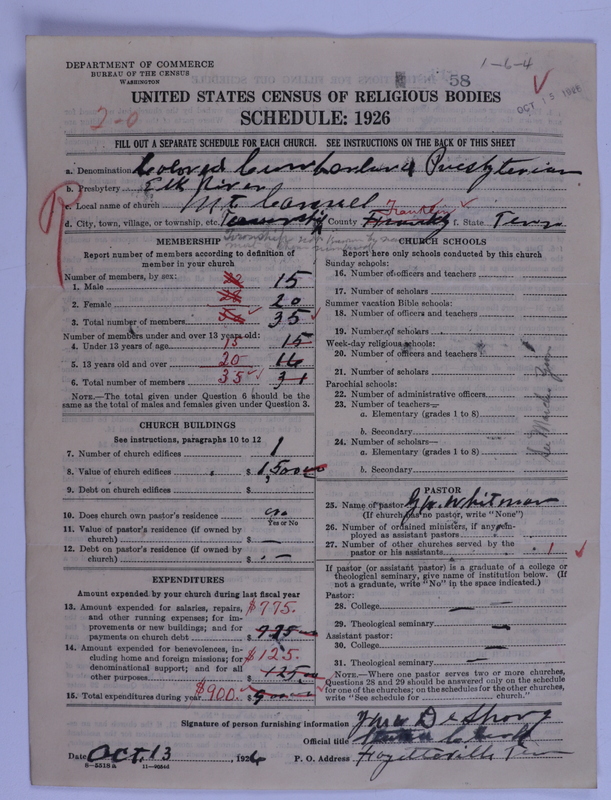 DEPARTMENT OF COMMERCE
BUREAU OF THE CENSUS
WASHINGTON
58
1-6-4
OCT 15 1926
UNITED STATES CENSUS OF RELIGIOUS BODIES
2-0
SCHEDULE: 1926
FILL OUT A SEPARATE SCHEDULE FOR EACH CHURCH. SEE INSTRUCTIONS ON THE BACK OF THIS SHEET
a. Denomination Colored Cumberland Presbyterian
b. Presbytery Elk River
c. Local name of church Mt Carmel
d. City, town, village, or township, etc. Township County Franklin f. State Tenn
MEMBERSHIP
Report number of members according to definition of member in your church
Number of members, by sex:
1. Male 15
2. Female 20
3. Total number of members 35
Number of members under and over 13 years old:
4. Under 13 years of age 15 15
5. 13 years old and over 20 16
6. Total number of members 35 31
NOTE.—The total given under Question 6 should be the same as the total of males and females given under Question 3.
CHURCH BUILDINGS
See instructions, paragraphs 10 to 12
7. Number of church edifices 1
8. Value of church edifices $ 1,500
9. Debt on church edifices $
10. Does church own pastor's residence no
Yes or No
11. Value of pastor's residence (if owned by church) $ —
12. Debt on pastor's residence (if owned by church) $ —
EXPENDITURES
Amount expended by your church during last fiscal year
13. Amount expended for salaries, repairs, and other running expenses; for improvements or new buildings; and for payments on church debt $775.
14. Amount expended for benevolences, including home and foreign missions; for denominational support; and for all other purposes $125. 125
15. Total expenditures during year $900.
CHURCH SCHOOLS
Report here only schools conducted by this church
Sunday schools:
16. Number of officers and teachers
17. Number of scholars
Summer vacation Bible schools:
18. Number of officers and teachers
19. Number of scholars
Week-day religious schools:
20. Number of officers and teachers
21. Number of scholars
Parochial schools:
22. Number of administrative officers
23. Number of teachers—
a. Elementary (grades 1 to 8)
b. Secondary
24. Number of scholars—
a. Elementary (grades 1 to 8)
b. Secondary
PASTOR
25. Name of pastor G.W. Whitman
(If church has no pastor, write "None")
26. Number of ordained ministers, if any, employed as assistant pastors
27. Number of other churches served by the pastor or his assistants 1
If pastor (or assistant pastor) is a graduate of a college or theological seminary, give name of institution below. (If not a graduate, write "No" in the space indicated.)
Pastor:
28. College —
29. Theological seminary —
Assistant pastor:
30. College —
31. Theological seminary —
NOTE.—Where one pastor serves two or more churches, Questions 28 and 29 should be answered only on the schedule for one of the churches; on the schedules for the other churches, write "See schedule for church."
Signature of person furnishing information
Official title
Date Oct. 13, 1926 P. O. Address Fayetteville Tenn
8-5518a 11-90546